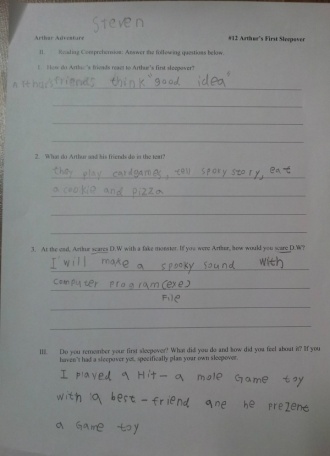 Steven
Arthur Adventure #12 Arthur's First Sleepover
II. Reading Comprehension. Answer the following questions below.
1. How do Arthur's friends react to Arthur's first sleepover?
Arthurs friends think "good idea"
2. What do Arthur and his friends do in the tent?
they play cardgames, tell spooky story, eat
a cookie and pizza
3. At the end, Arthur scares D.W with a fake monster. If you were Arthur, how would you scare D.W?
I'will make a spooky sound with
computer program(exe)
File
III. Do you remember your first sleepover? What did you do and how did you feel about it? If you
haven't had a sleepover yet, specifically plan your own sleepover.
I played a Hit-a mole Game toy
with a best-friend ane he prezent
a Game toy